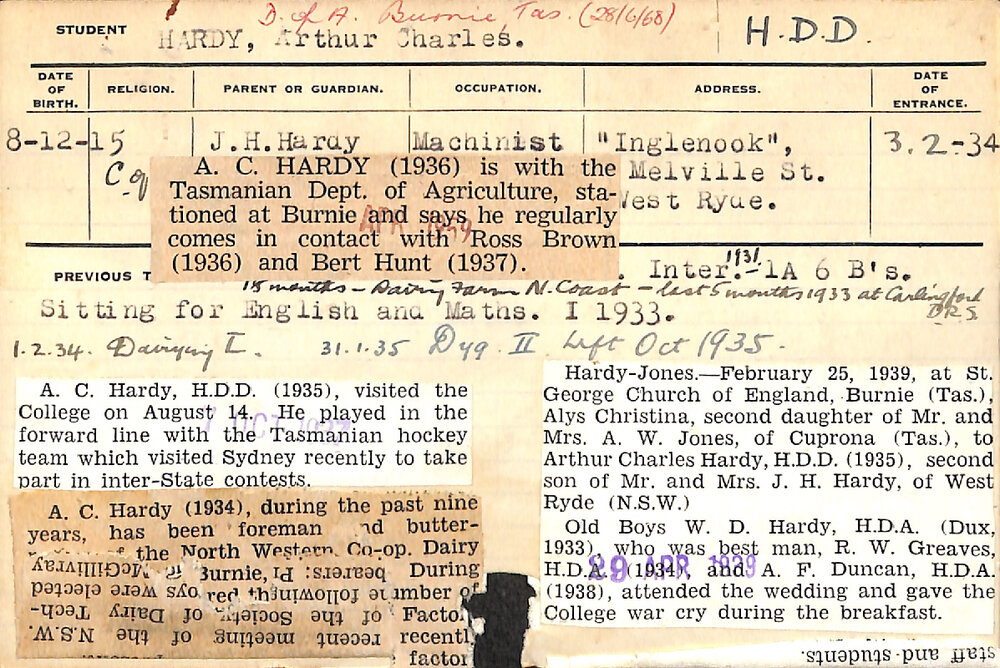 D. of A. Burnie, Tas. (28/6/68)
STUDENT HARDY, Arthur Charles. H.D.D.
DATE OF BIRTH. RELIGION. PARENT OR GUARDIAN. OCCUPATION. ADDRESS. DATE OF ENTRANCE.
8-12-15 J.H.Hardy Machinist "Inglenook", 3.2-34
Melville St.
West Ryde.
A. C. HARDY (1936) is with the
Tasmanian Dept. of Agriculture, sta-
tioned at Burnie and says he regularly
comes in contact with Ross Brown
(1936) and Bert Hunt (1937).
PREVIOUS Inter. 1931 -1A 6 B's.
18 months - Dairy Farm N. Coast - last 5 months 1933 at Carlingford
D.R.S.
Sitting for English and Maths. I 1933.
1.2.34. Dairying I. 31.1.35 Dyg. II Left Oct 1935.
A. C. Hardy, H.D.D. (1935), visited the
College on August 14. He played in the
forward line with the Tasmanian hockey
team which visited Sydney recently to take
part in inter-State contests.
A. C. Hardy (1934), during the past nine
years, has been foreman nd butter-
the North Western Co-op. Dairy
Burnie, During
red th umber of
Factor
recently
factor
bearers:
McGillivray
oys were elected
following
of the Society of Dairy Tech-
recent meeting of the N.S.W.
Hardy-Jones.—February 25, 1939, at St.
George Church of England, Burnie (Tas.),
Alys Christina, second daughter of Mr. and
Mrs. A. W. Jones, of Cuprona (Tas.), to
Arthur Charles Hardy, H.D.D. (1935), second
son of Mr. and Mrs. J. H. Hardy, of West
Ryde (N.S.W.)
Old Boys W. D. Hardy, H.D.A. (Dux,
1933), who was best man, R. W. Greaves,
H.D.A. (1934), and A. F. Duncan, H.D.A.
(1938), attended the wedding and gave the
College war cry during the breakfast.
29 APR 1939
staff and students.